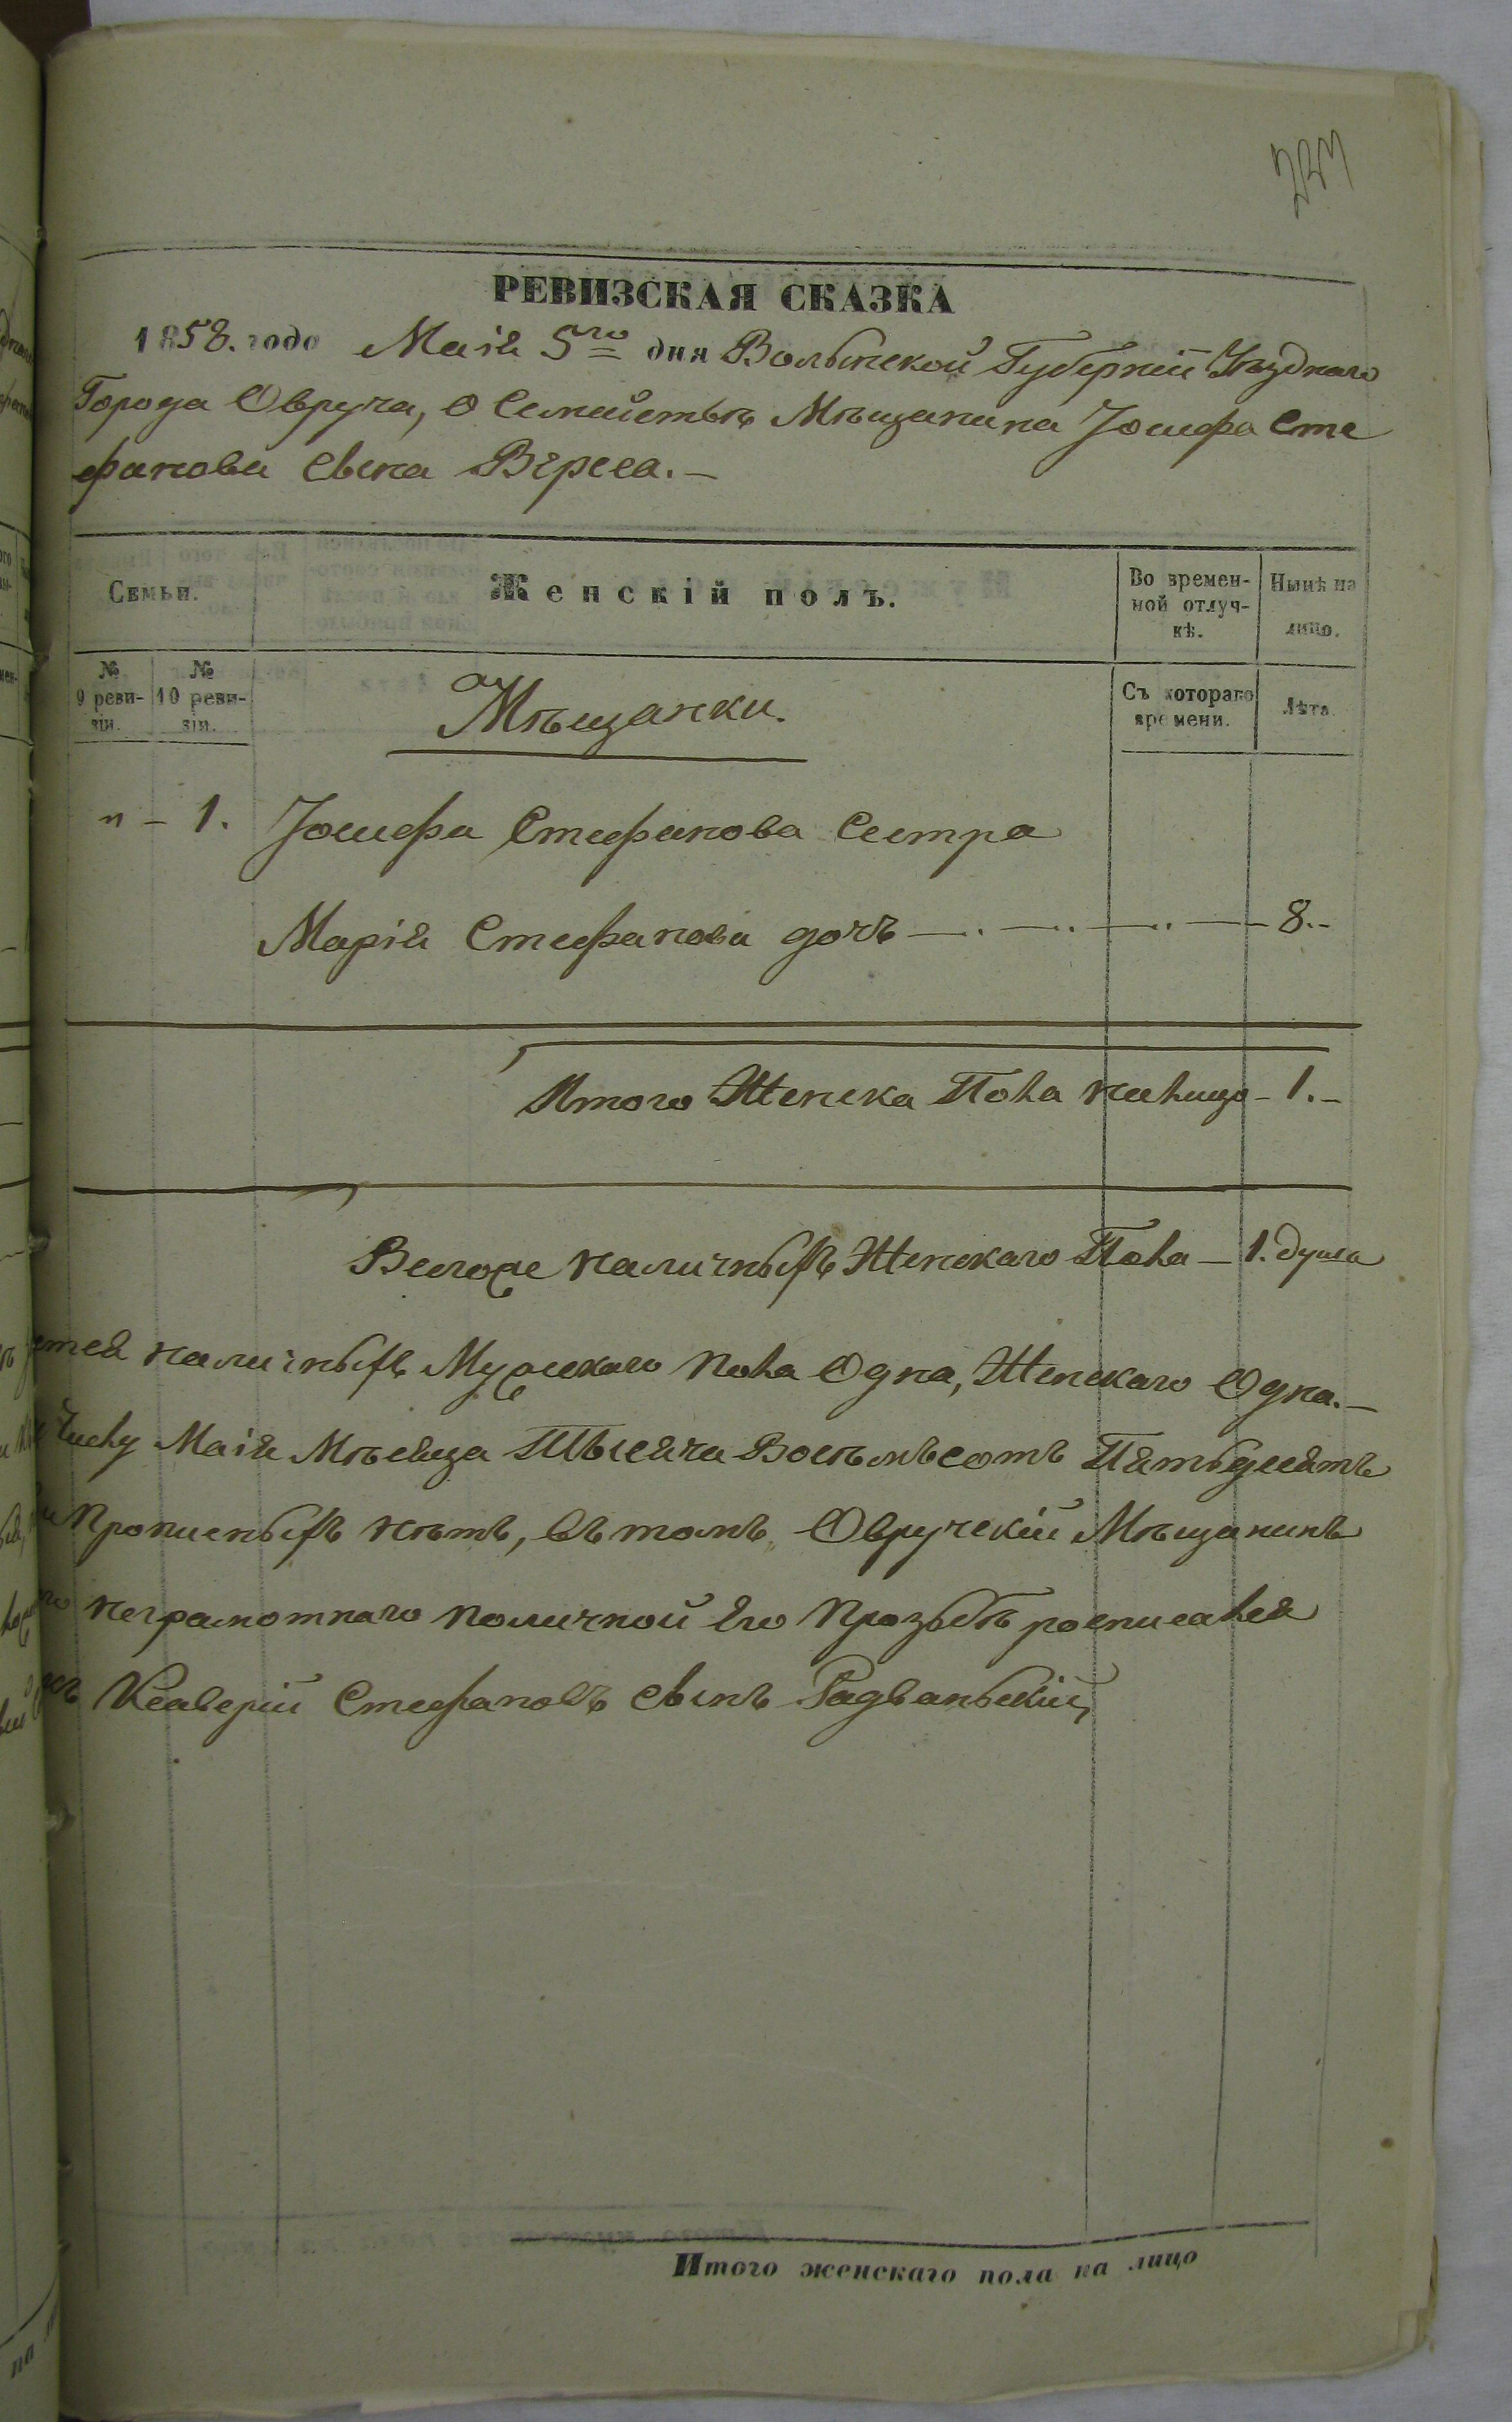 РЕВИЗСКАЯ СКАЗКА
1858. года Маія 5го дня Волынской Губерніи Уѣзднаго
Города Овруча, О Семействѣ Мѣщанина Іосифа Сте
фанова Сына Верса.—
Семьи.
Женскій полъ.
Во времен-
ной отлуч-
кѣ.
Нынѣ на
лицо.
№
9 реви-
зіи.
№
10 реви-
зіи.
Мѣщанки.
Съ котораго
времени.
Лѣта.
" – 1. Іосифа Стефанова Сестра
Марія Стефанова дочь — . — .. — .. — 8.–
Итого Женска Пола налицо – 1.–
Всегоже наличныхъ Женскаго Пола — 1. душа
наличныхъ Мужескаго пола Одна, Женскаго Одна.—
Числу Маія Мѣсяца Тысяча Восѣмьсотъ Пятьдесятъ
Прописныхъ нѣтъ, въ томъ Овручскій Мѣщанинъ
неграмотнаго поличной Его прозьбѣ росписался
Ксаверій Стефановъ сынъ Радваньскій,
Итого женскаго пола на лицо